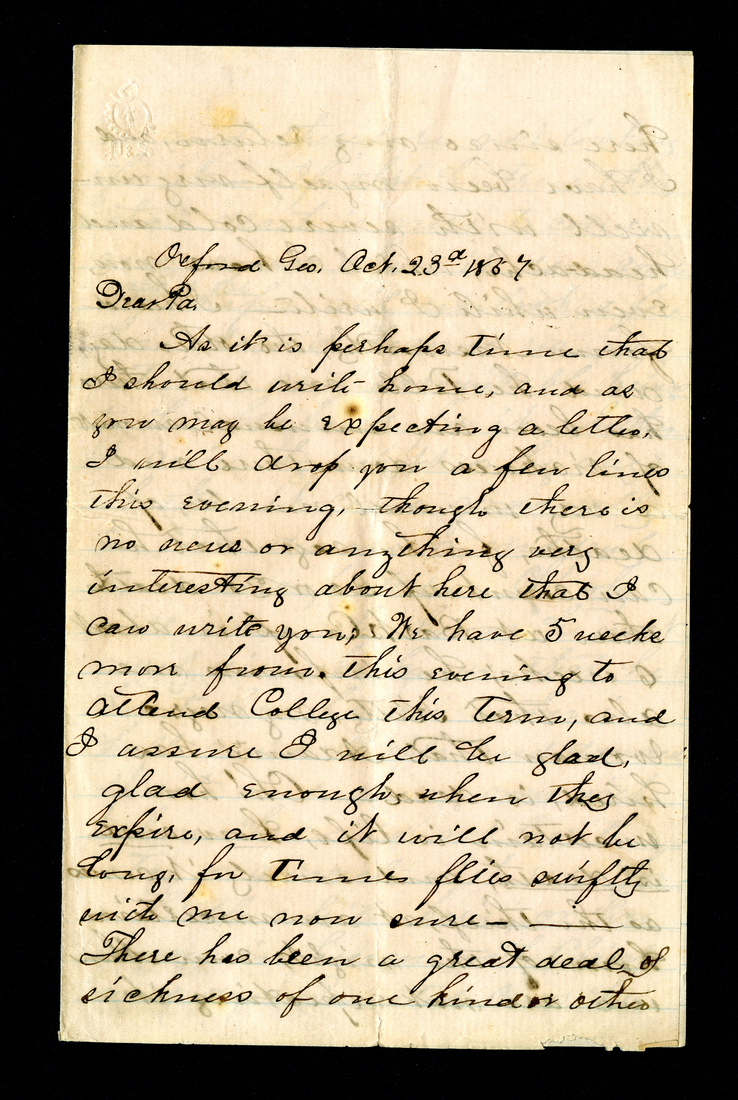 Oxford Geo. Oct. 23d 1867
Dear Pa,
As it is perhaps time that
I should write home, and as
you may be expecting a letter,
I will drop you a few lines
this evening, though there is
no news or anything very
interesting about here that I
can write you; We have 5 weeks
more from this evening to
attend College this term, and
I assure I will be glad,
glad enough when they
expire, and it will not be
long, for time flies swiftly
with me now sure —
There has been a great deal of
sickness of one kind or other